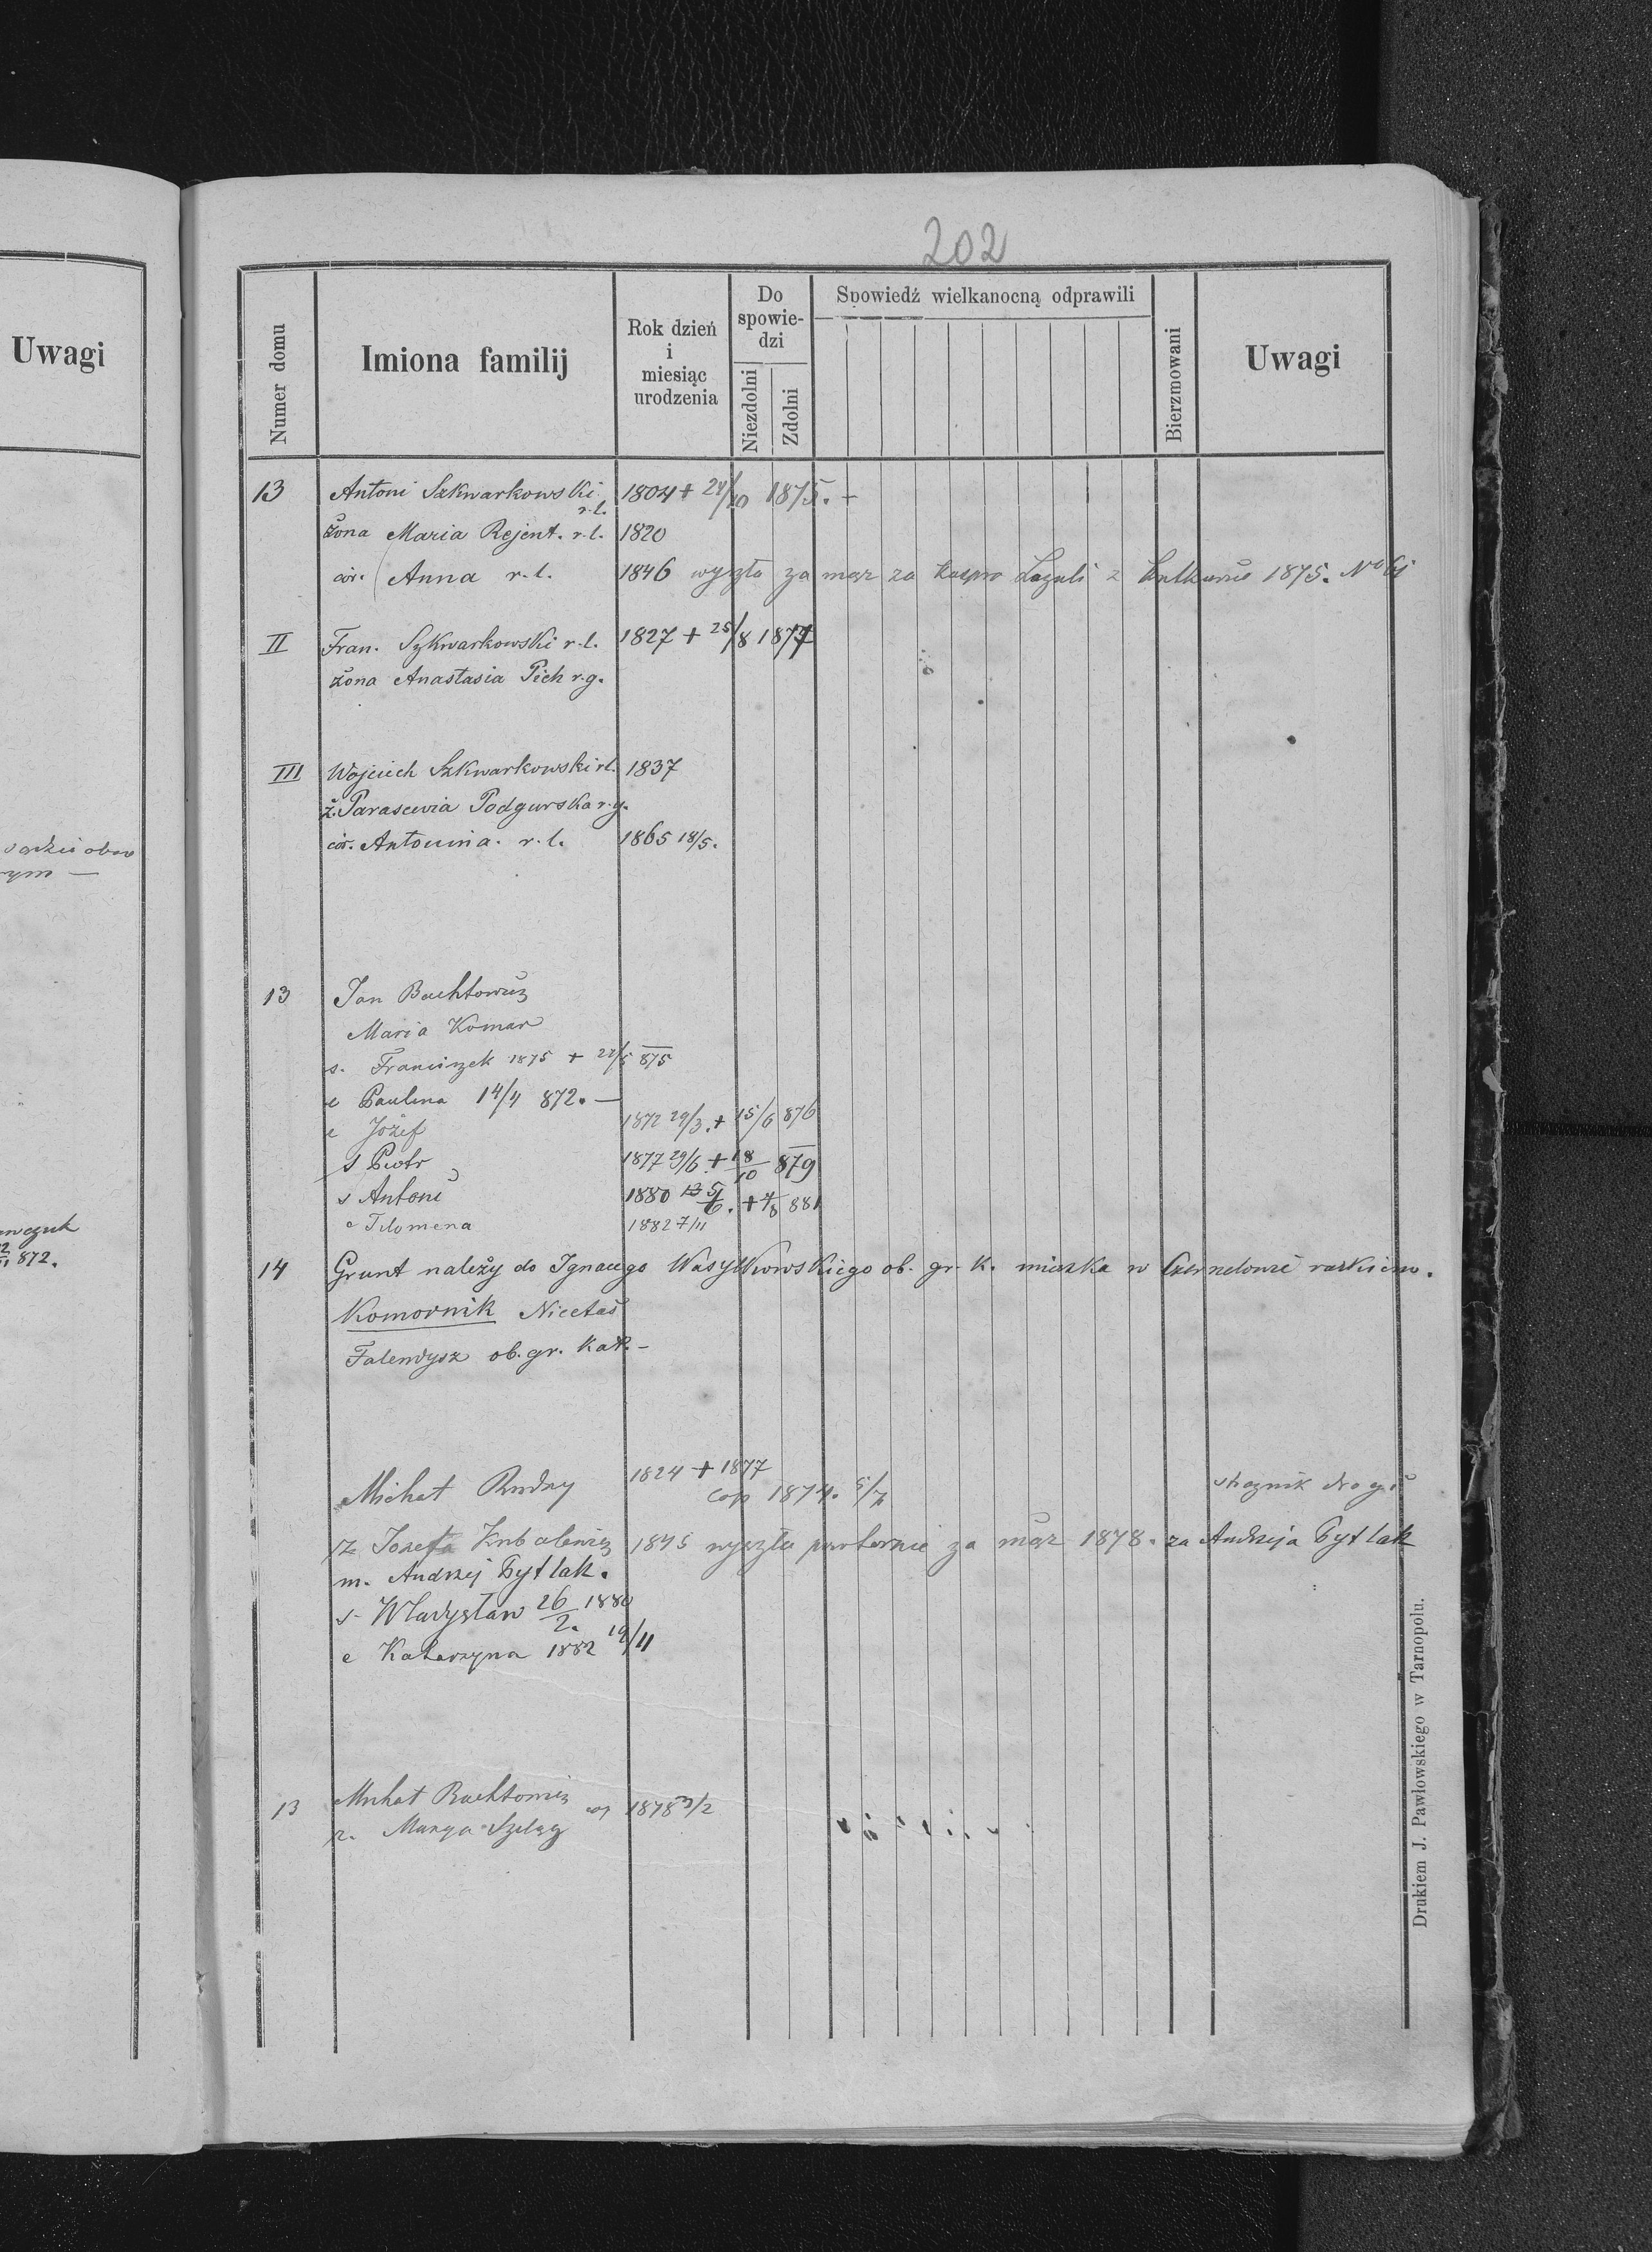 202
Uwagi
Numer domu
Imiona familij
Rok dzień i miesiąc urodzenia
Do spowiedzi
Niezdolni
Zdolni
Spowiedź wielkanocną odprawili
Bierzmowani
Uwagi
13 Antoni Szkwarkowski r.l. 1804 + 24/10 1875. -
żona Maria Rejent. r.l. 1820
cór. Anna r.l. 1846 wyszła za mąż za 1875. No
II Fran. Szkwarkowski r.l. 1827 + 25/8 1877
żona Anastasia Pich r.g.
III Wojciech Szkwarkowski r.l. 1837
ż. Parascevia Podgurska r.g.
cór. Antonina. r.l. 1865 18/5.
13 Jan Bachtowicz
Maria Komar
s. Franciszek 1875 + 875
c Paulina 14/4 872. —
c Józef 1872 29/3. + 15/6 876
s Piotr 1877 29/6 + 18/10 879
s Antoni 1880 + 881
c Filomena 1882 7/11
14 Grunt należy do Ignacego ob. gr. k. mieszka w
Komornik Nicetaś
Falendysz ob. gr. kat. -
Michał Rudzy 1824 + 1877
cop 1874.
ż Józefa 1845 wyszła powtornie za mąż 1878. za Andrzeja Pytlak
m. Andrzej Pytlak.
s. Władysław 26/2. 1880
c Katarzyna 1882 19/11
13 Michał Bachtowicz cop 1878
ż. Marya Szeląg
872.
Drukiem J. Pawłowskiego w Tarnopolu.